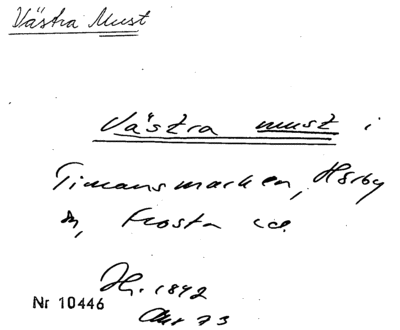 Västra Must
Västra must i
Timansmarken, Hörby
sn, Frosta hd.
H. 1892
Nr 10446
Akt 73